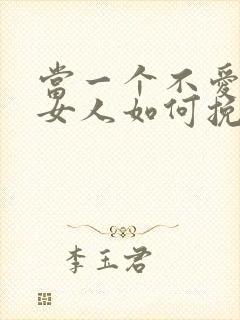 當一个不愛
女人如何挽
李玉君